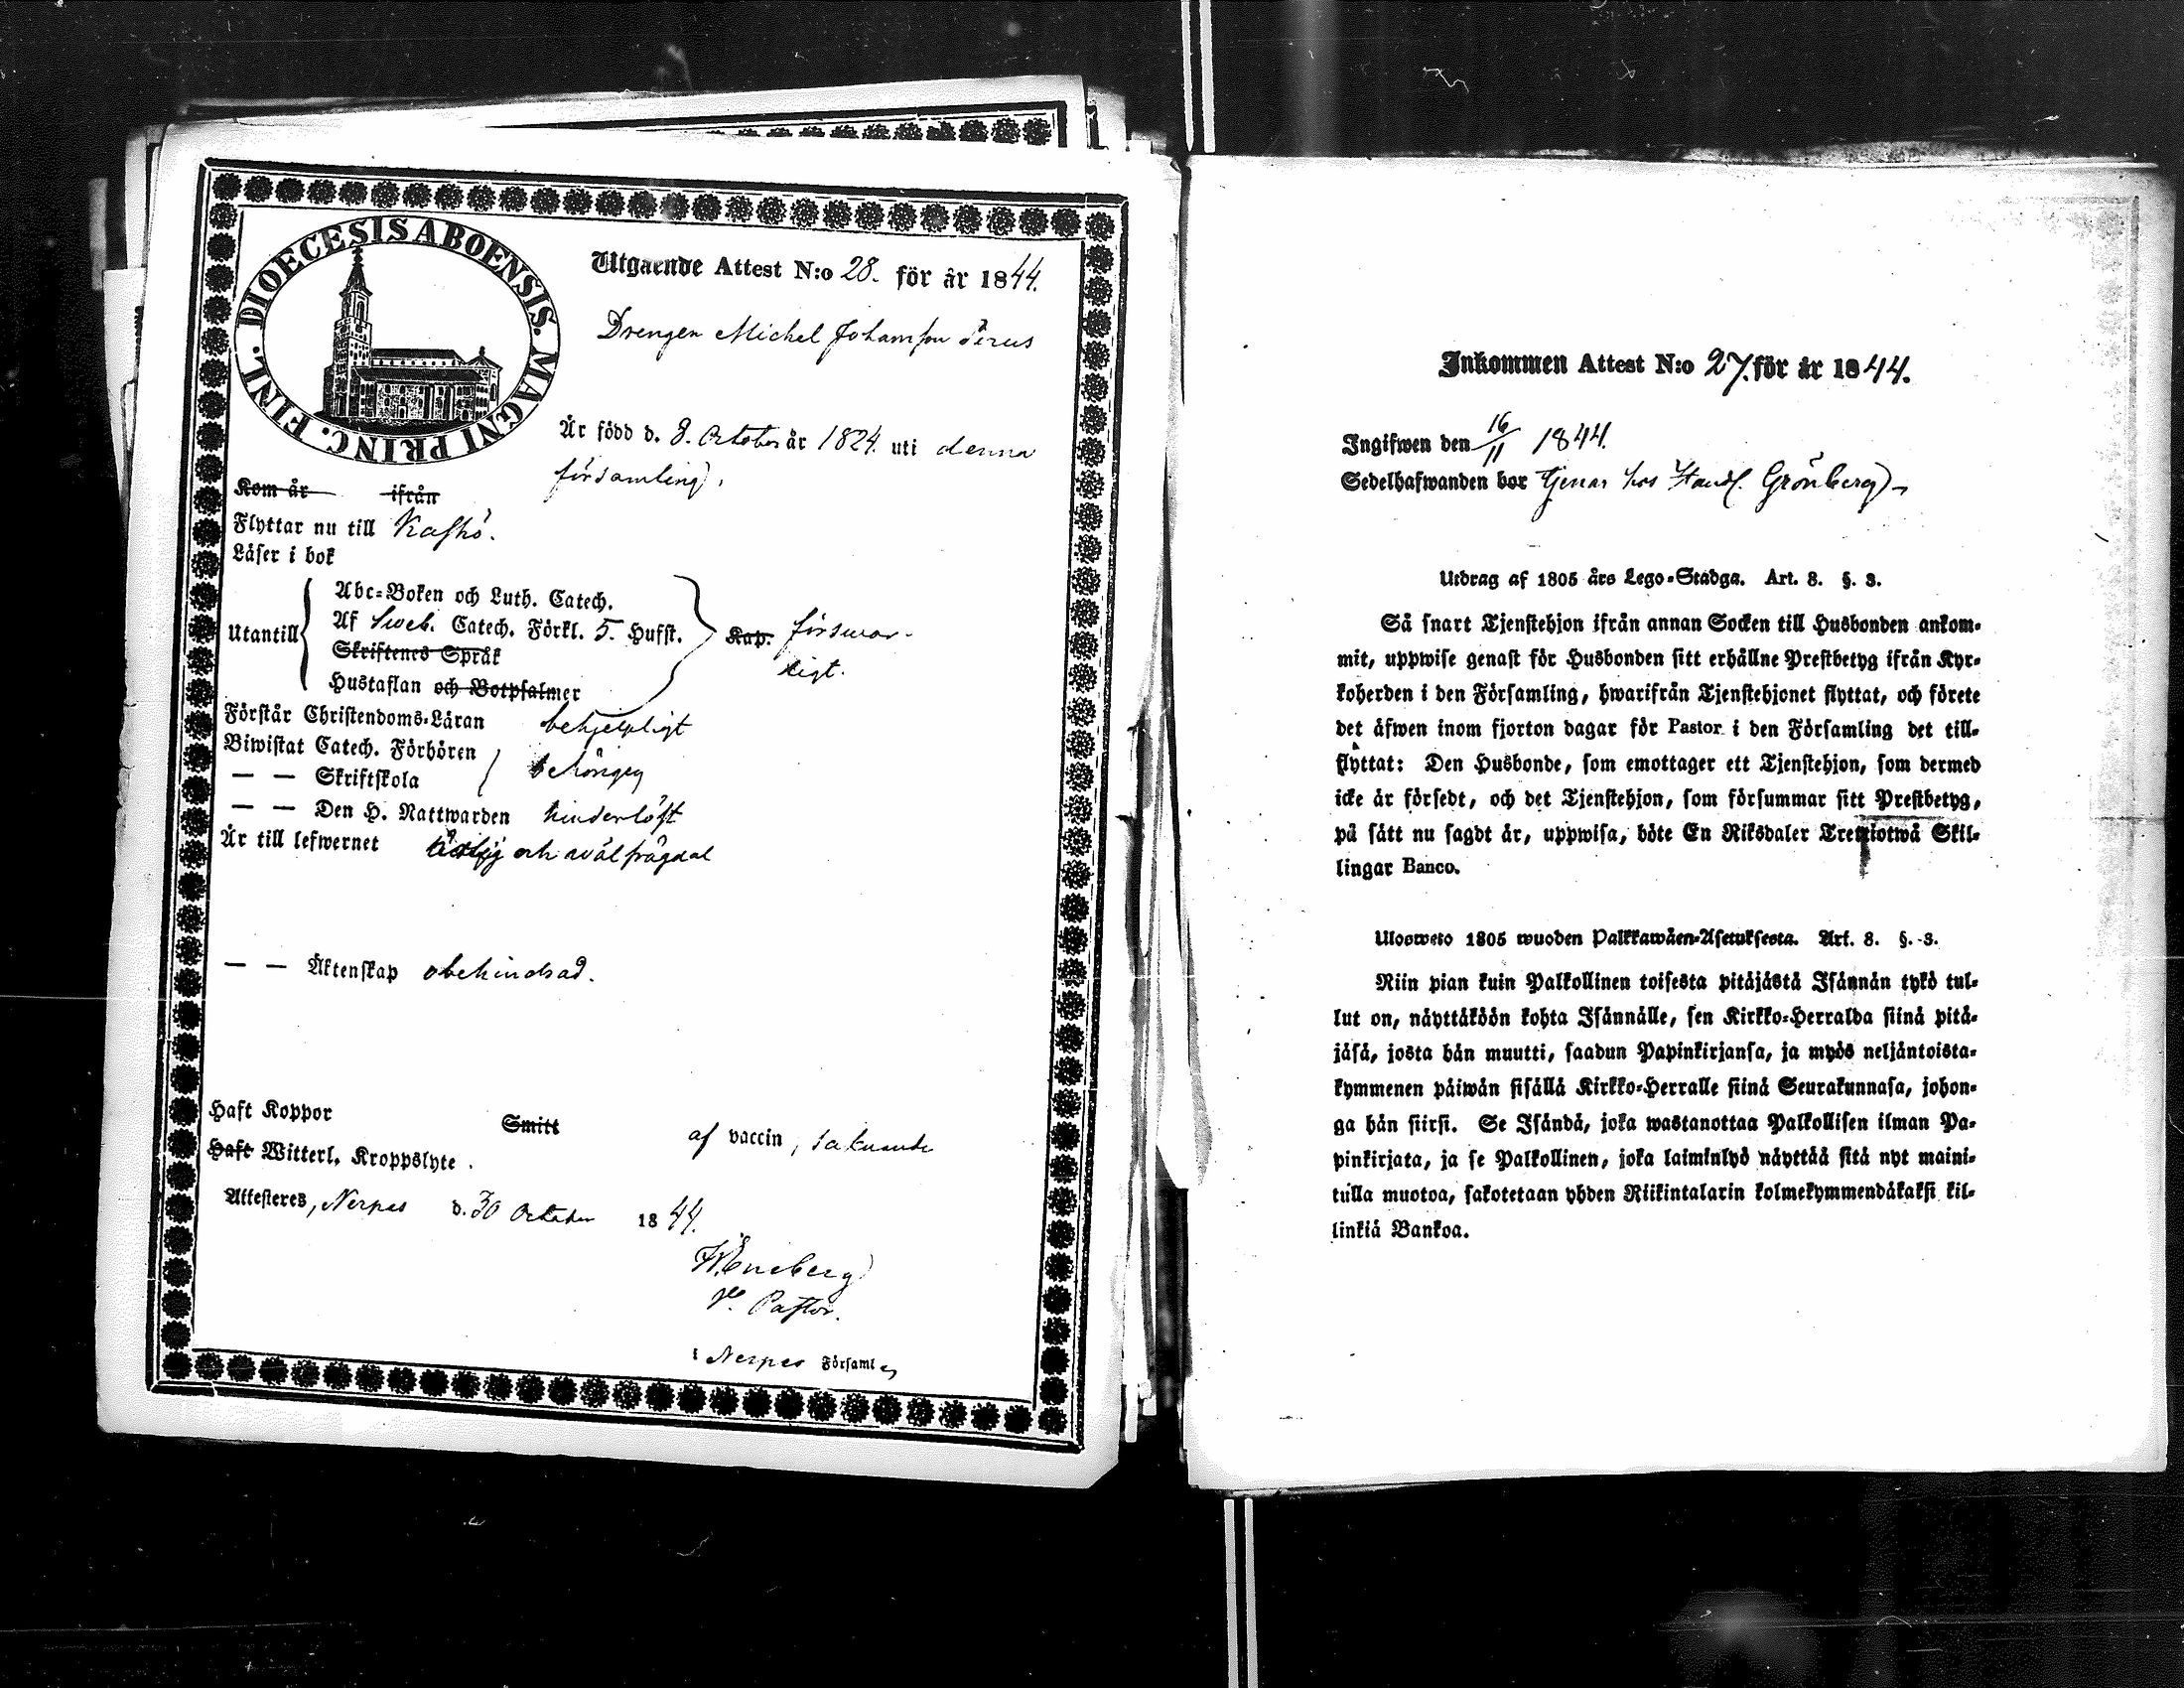 DIOECESIS ABOENSIS. MAGNI PRINC. FINL.
Utgående Attest N:o 28. för år 1844.
Drengen Michel Johansson
Är född d. 8. October år 1824. uti denna
församling.
Kom år ifrån
Flyttar nu till Kaskö.
Läser i bok
Utantill
Abc-Boken och Luth. Catech.
Af Sweb. Catech. Förkl. 5. Hufst.
Skriftenes Språk
Hustaflan och Botpsalmer
Kap. förswar-
ligt.
Förstår Christendoms-Läran behjelpligt
Biwistat Catech. Förhören
— — Skriftskola
behörigen
— — Den H. Nattwarden hinderlöst
Är till lefwernet och wälfrägdad
— — Äktenskap obehindrad.
Haft Koppor Smitt af vaccin, saknande
Haft Witterl. Kroppslyte.
Attesteres, Nerpes d. 30 October 1844.
v. Pastor.
i Nerpes Församl
Inkommen Attest N:o 27. för år 1844.
Ingifwen den 16/11 1844.
Sedelhafwanden bor tjenar hos Handl. Grönberg
Utdrag af 1805 års Lego-Stadga. Art. 8. §. 3.
Så snart Tjenstehjon ifrån annan Socken till Husbonden ankom-
mit, uppwise genast för Husbonden sitt erhållne Prestbetyg ifrån Kyr-
koherden i den Församling, hwarifrån Tjenstehjonet flyttat, och förete
det äfwen inom fjorton dagar för Pastor i den Församling det till-
flyttat: Den Husbonde, som emottager ett Tjenstehjon, som dermed
icke är försedt, och det Tjenstehjon, som försummar sitt Prestbetyg,
på sätt nu sagdt är, uppwisa, böte En Riksdaler Trettiotwå Skil-
lingar Banco.
Ulosweto 1805 wuoden Palkkawäen-Asetuksesta. Art. 8. §. 3.
Niin pian kuin Palkollinen toisesta pitäjästä Isännän tykö tul-
lut on, näyttäköön kohta Isännälle, sen Kirkko-Herralda siinä pitä-
jäsä, josta hän muutti, saadun Papinkirjansa, ja myös neljäntoista-
kymmenen päiwän sisällä Kirkko-Herralle siinä Seurakunnasa, johon-
ga hän siirsi. Se Isändä, joka wastanottaa Palkollisen ilman Pa-
pinkirjata, ja se Palkollinen, joka laiminlyö näyttää sitä nyt maini-
tulla muotoa, sakotetaan yhden Riikintalarin kolmekymmendäkaksi kil-
linkiä Bankoa.